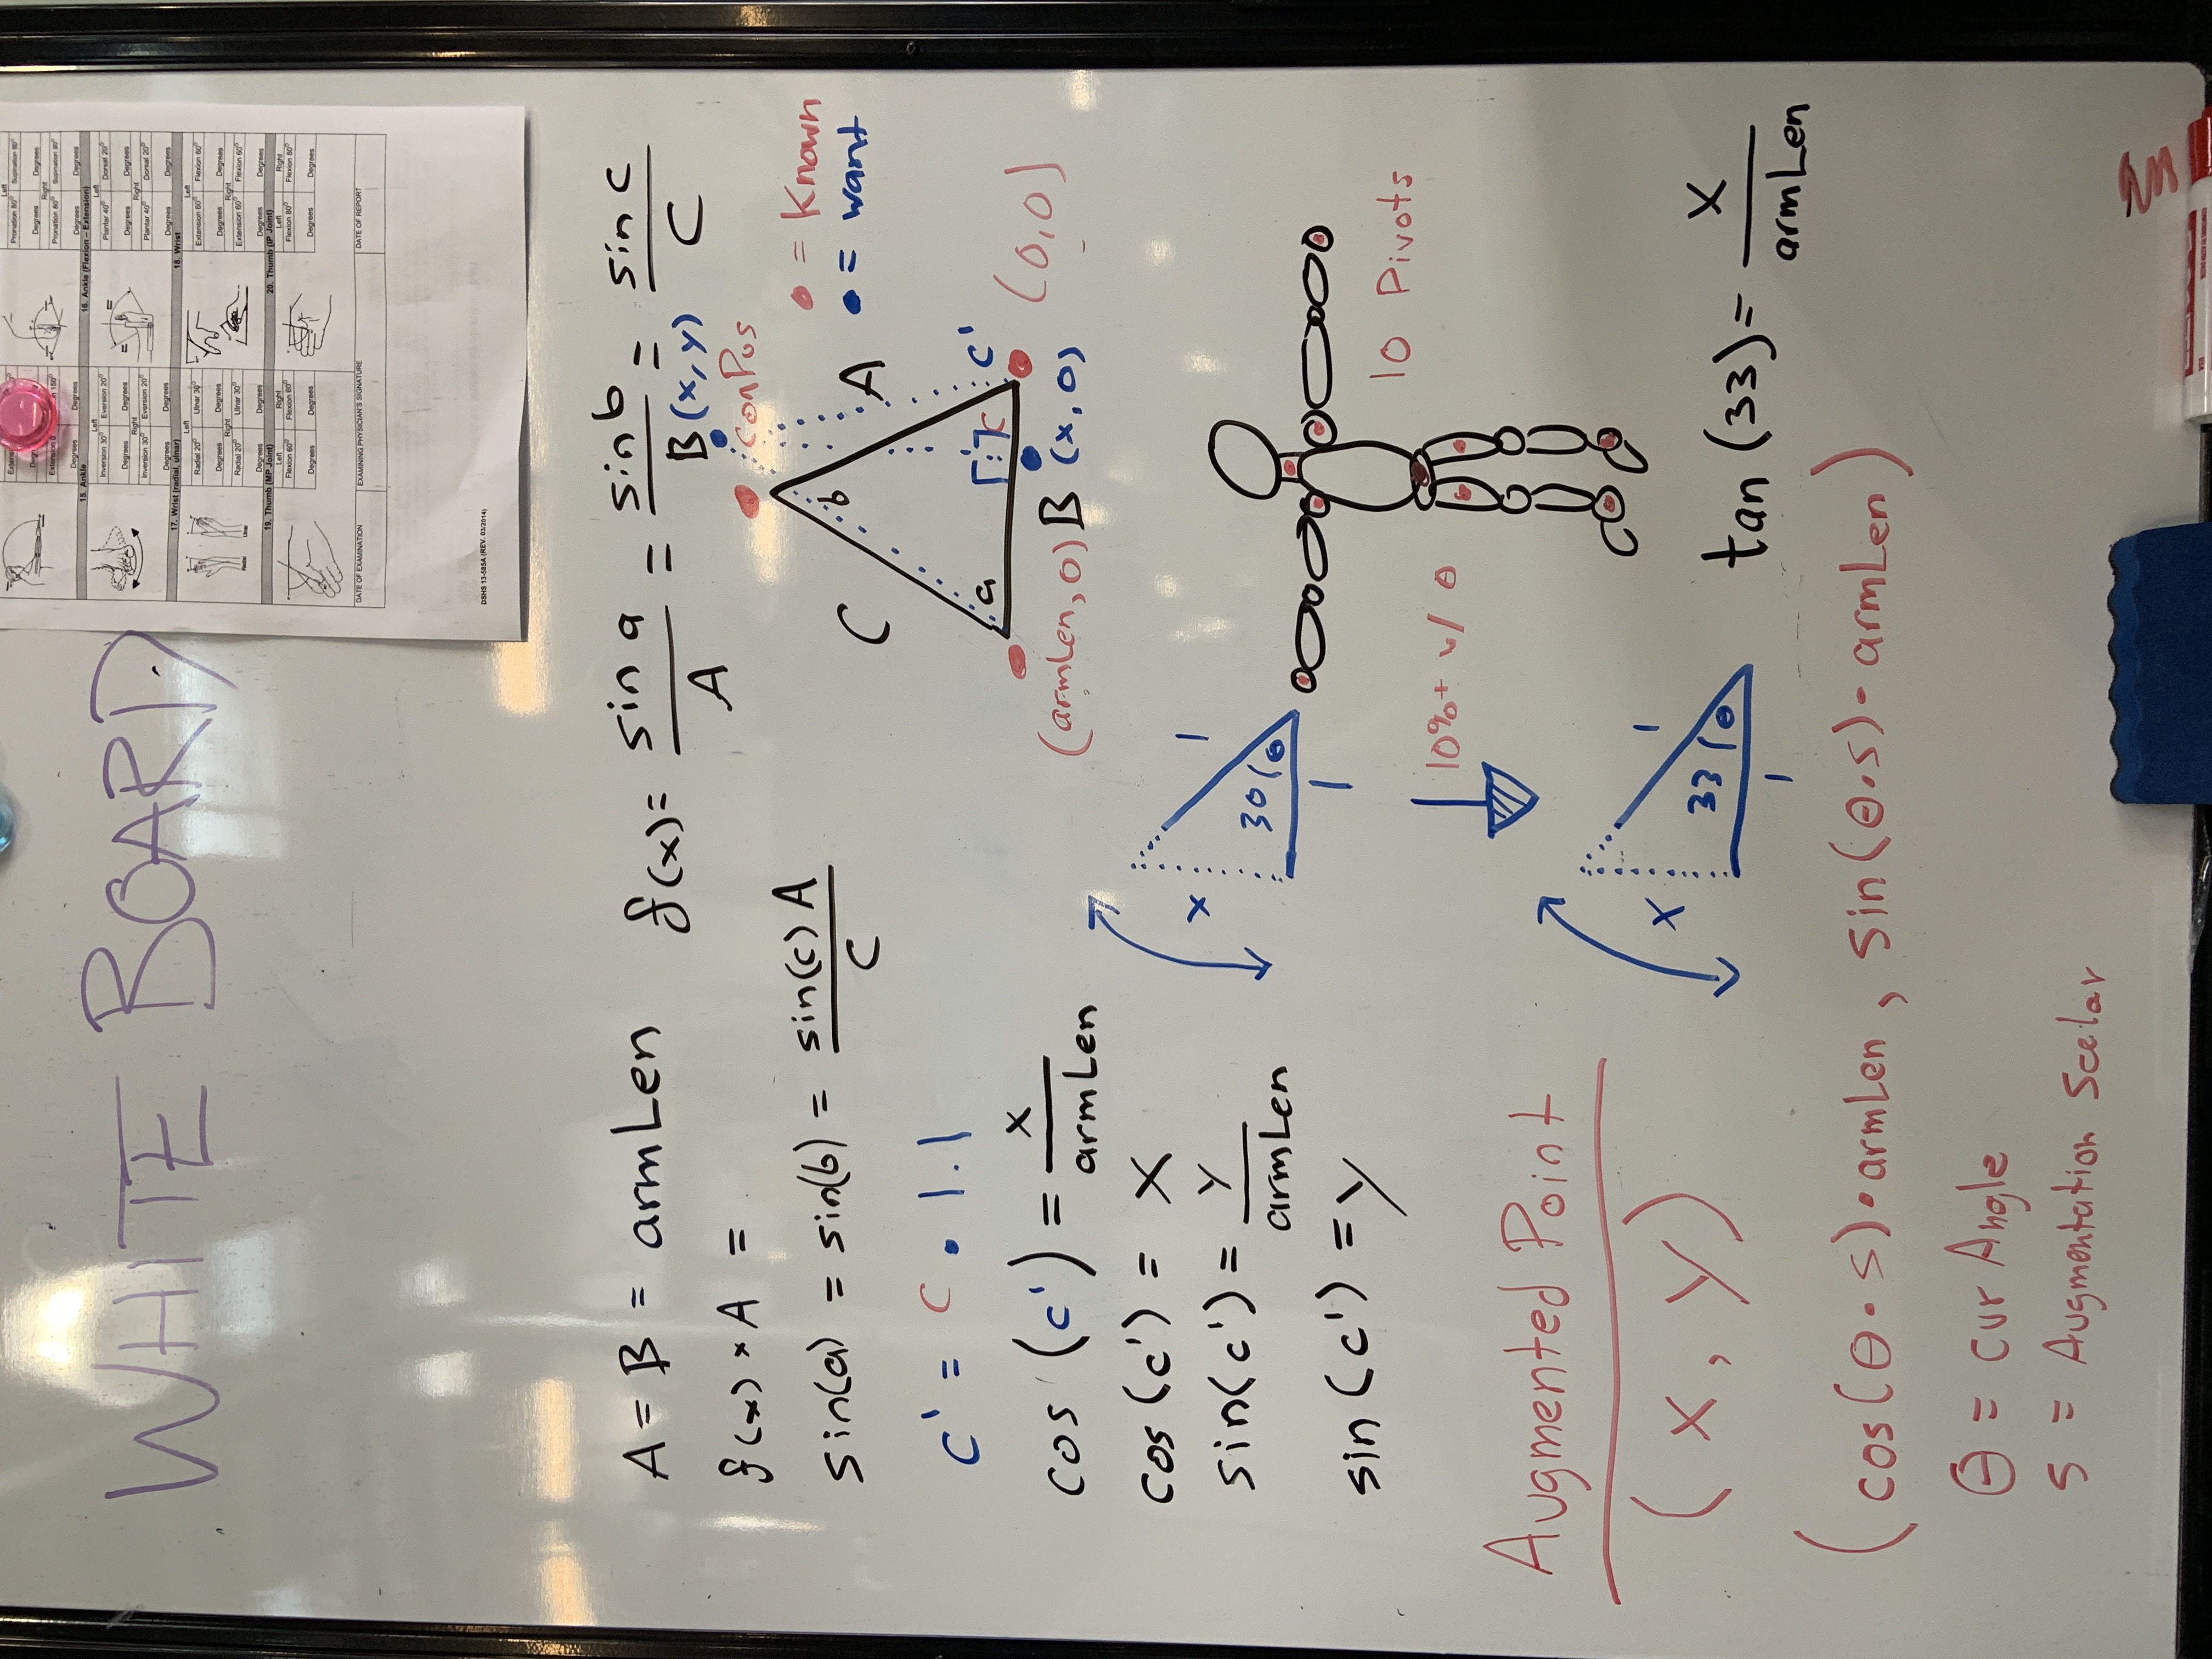 WHITE BOARD
Left
Pronation 80° Supination 80°
Degrees Degrees
Right
Pronation 80° Supination 80°
Degrees Degrees
15. Ankle
Left
Inversion 30° Eversion 20°
Degrees Degrees
Right
Inversion 30° Eversion 20°
Degrees Degrees
16. Ankle (Flexion – Extension)
Left
Plantar 40° Dorsal 20°
Degrees Degrees
Right
Plantar 40° Dorsal 20°
Degrees Degrees
17. Wrist (radial, ulnar)
Radial Ulnar
Left
Radial 20° Ulnar 30°
Degrees Degrees
Right
Radial 20° Ulnar 30°
Degrees Degrees
18. Wrist
Left
Extension 60° Flexion 60°
Degrees Degrees
Right
Extension 60° Flexion 60°
Degrees Degrees
19. Thumb (MP Joint)
Left Right
Flexion 60° Flexion 60°
Degrees Degrees
20. Thumb (IP Joint)
Left Right
Flexion 80° Flexion 80°
Degrees Degrees
DATE OF EXAMINATION EXAMINING PHYSICIAN'S SIGNATURE DATE OF REPORT
DSHS 13-585A (REV. 03/2014)
A = B = armLen
f(x) = sin a / A = sin b / B = sin c / C
f(x) × A =
sin(a) = sin(b) = sin(c) A / C
c' = c • 1.1
cos (c') = x / armLen
cos (c') = x
sin(c') = y / armLen
sin (c') = y
(x, y)
conPos
• = Known
• = want
C b A
a c c'
(0,0)
(armLen, 0) B (x, 0)
x 1
30 θ
1
10%+ w/ θ
10 Pivots
x 1
33 θ
1
tan (33) = x / armLen
Augmented Point
(x, y)
(cos(θ • s) • armLen, sin(θ • s) • armLen)
θ = cur Angle
s = Augmentation Scelar